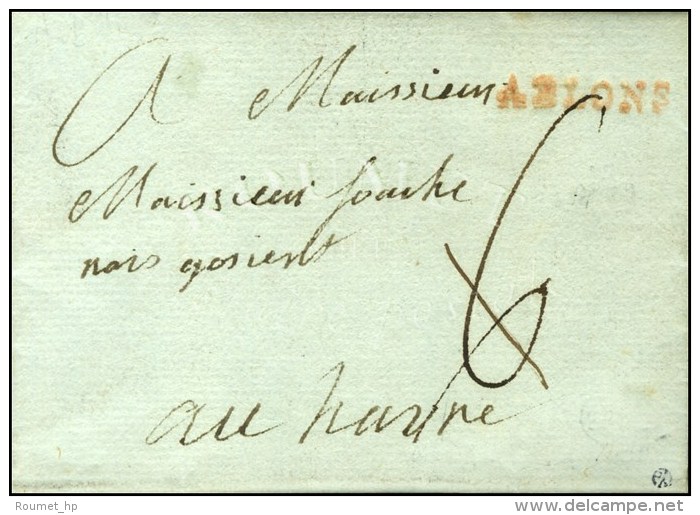 A Maissieur
ABLONS
Maissieur fouche
nais gosient
6
au havre
Roumet_hp
delcampe.net